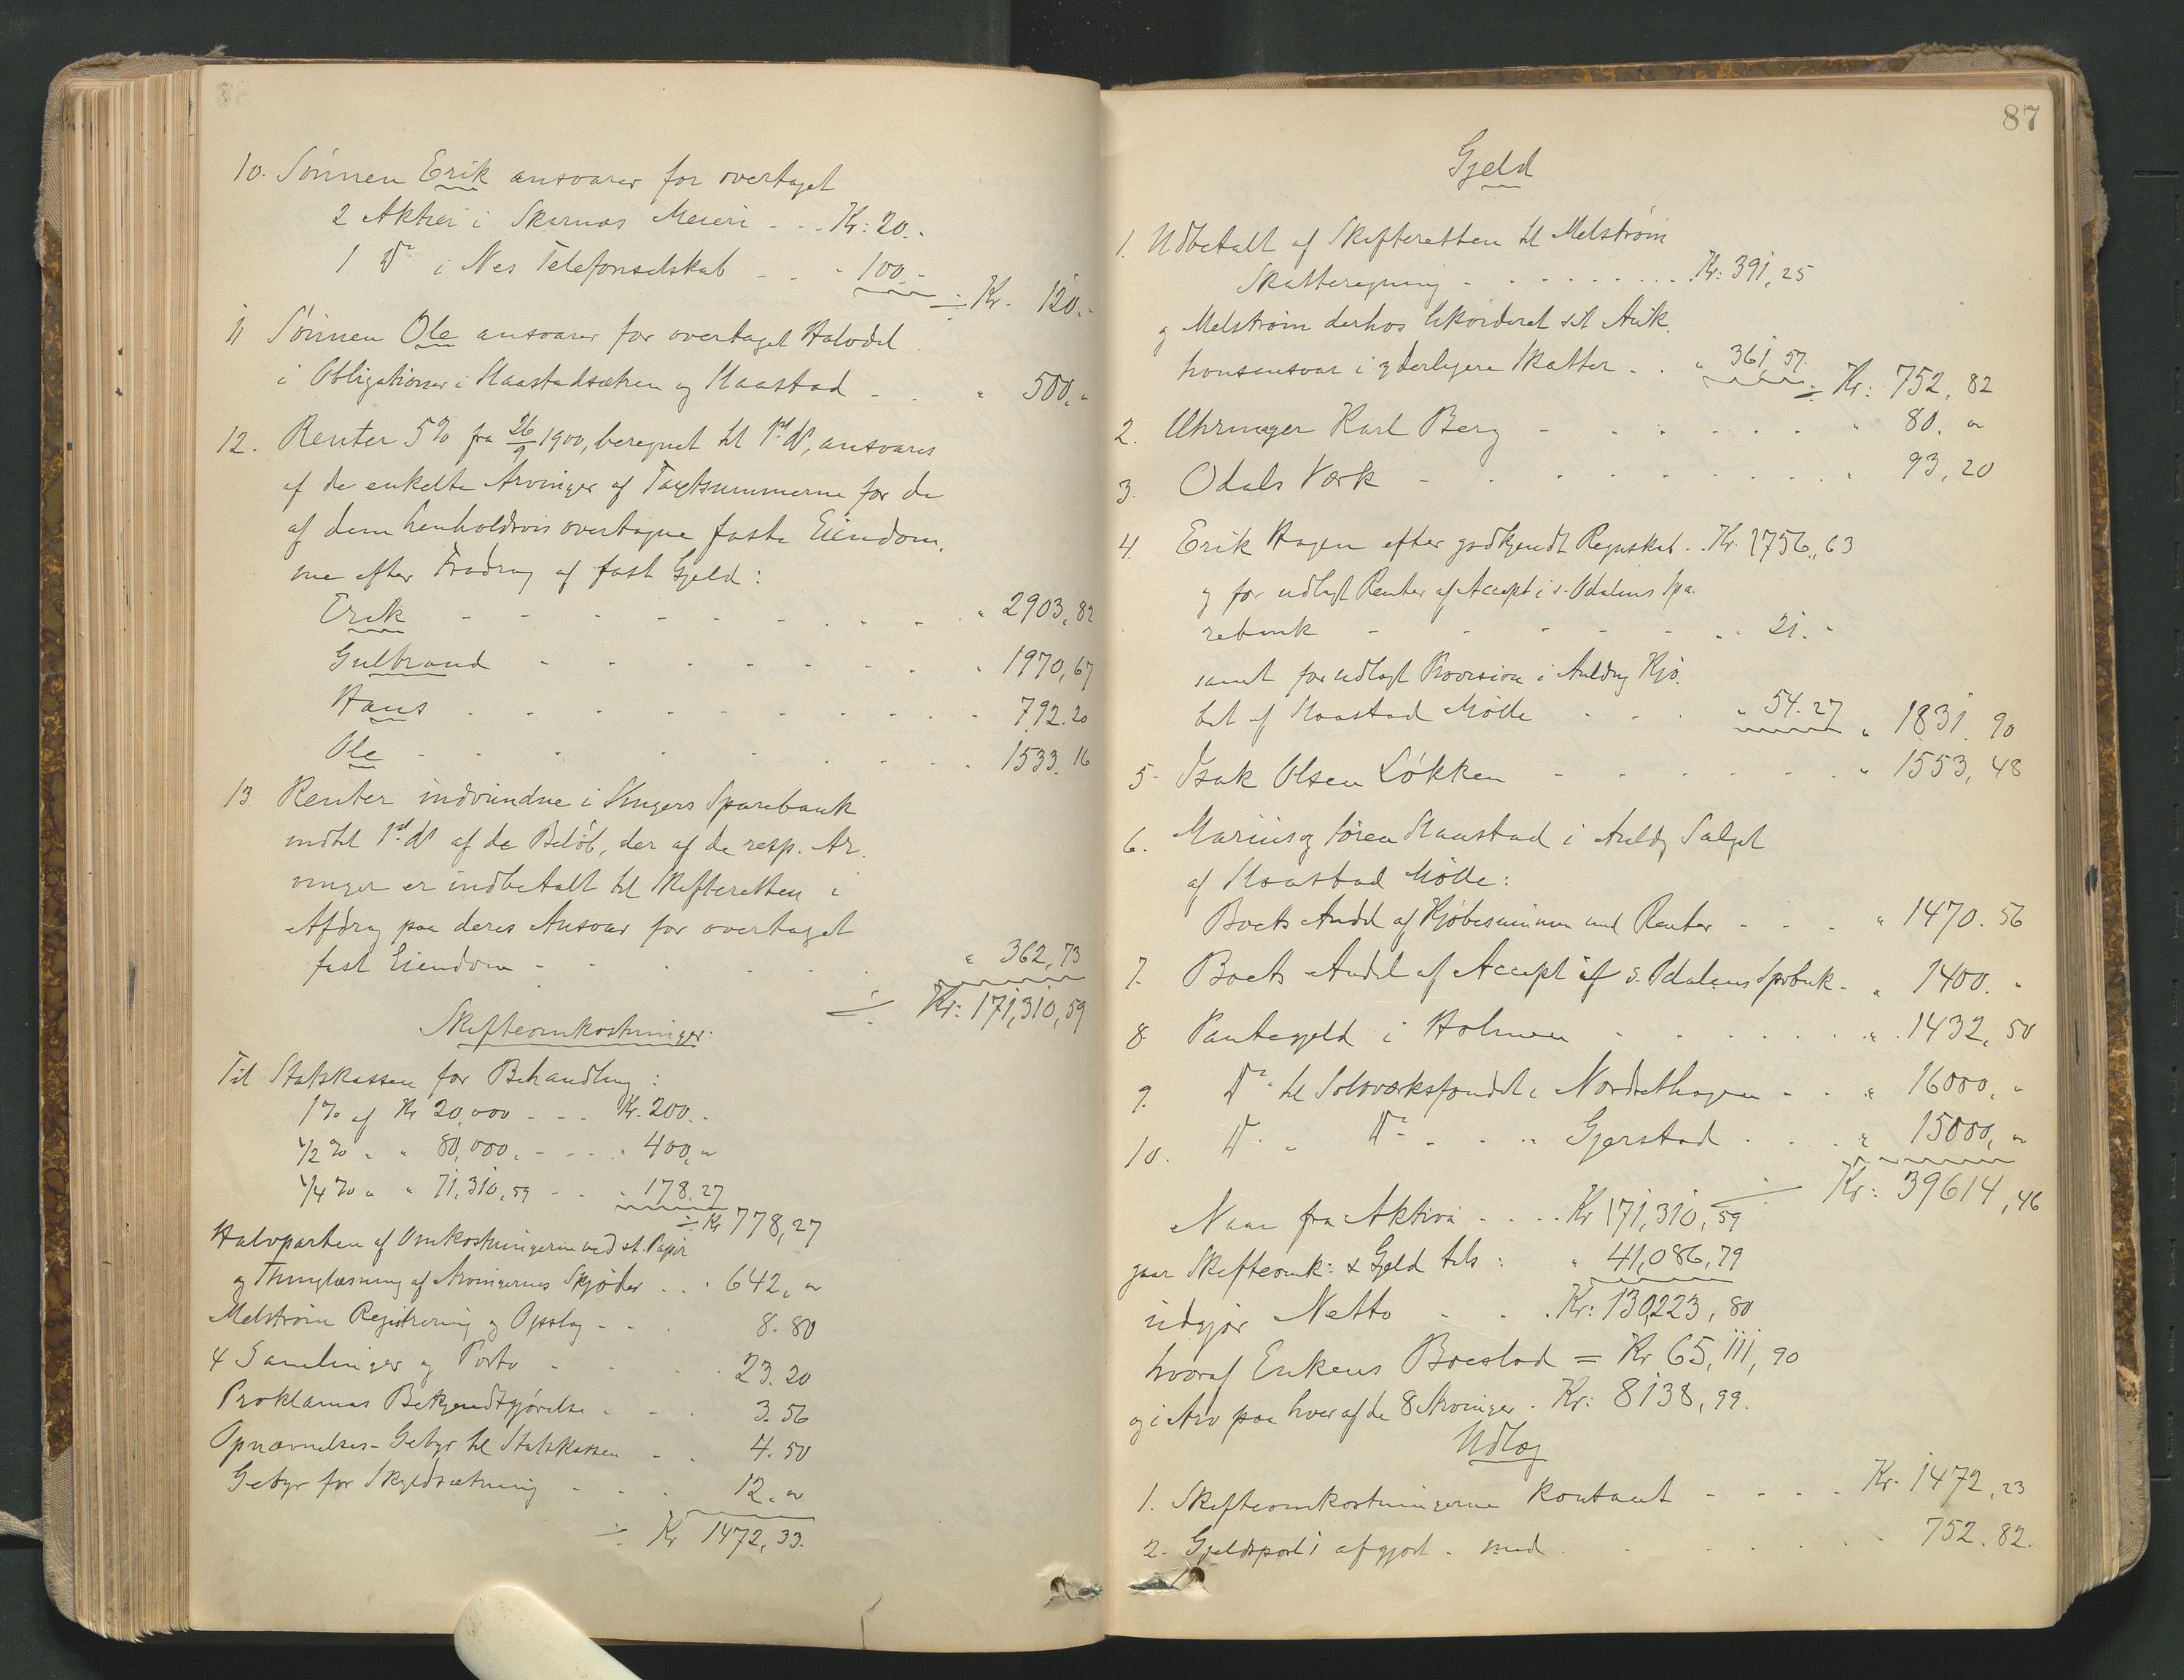 10. Sönnen Erik ansvarer for overtaget
2 Aktier i Skarnæs Meieri - - - Kr: 20.-
1 Do i Nes Telefonselskab - - - 100.-
÷ Kr. 120.-
11 Sönnen Ole ansvarer for overtaget Halvdel
i Obligationer i Kaastadsætren og Kaastad - - " 500."
12. Renter 5% fra 26/9 1900, beregnet til 1st. ds, ansvares
af de enkelte Arvinger af Taxtsummerne for de
af dem henholdsvis overtagne faste Eiendom.
me efter Fradrag af fast Gjeld:
Erik - - - - - " 2903,82
Gulbrand - - - - - " 1970,67
Hans - - - - - 792.20
Ole - - - - - 1533.16
13. Renter indvundne i Vingers Sparebank
indtil 1st. ds af de Belöb, der af de resp. Ar.
vinger er indbetalt til Skifteretten i
Afdrag paa deres Ansvar for overtaget
fast Eiendom - - - " 362,73
÷ Kr: 171,310,59
Skifteomkostninger:
Til Statskassen for Behandling:
1% af Kr 20,000 - - - Kr. 200.-
1/2 % " " 80,000. - - - " 400."
1/4 % " " 71,310,59 - - " 178.27
÷ Kr 778,27
Halvparten af Omkostningerne ved st. Papir
og Thinglæsning af Arvingernes Skjöder . . " 642. "
Melström Registrering og Opslag - - . 8.80
4 Samlinger og Porto - - . 23.20
Proklamas Bekjendtgjörelse - - . 3.56
Opnævnelses-Gebyr til Statskassen - . 4.50
Gebyr for Skyldsætning - - . 12. "
÷ Kr 1472,33.
87
Gjeld
1. Udbetalt af Skifteretten til Melström
Skatteregning - - - - - Kr: 391,25
og Melström derhos likvideret sit Auk.
tionsansvar i yderligere Skatter . . " 361,57.
÷ Kr: 752,82
2. Uhrmager Karl Berg - - - - " 80. "
3. Odals Værk - - - - " 93,20
4. Erik Hagen efter godkjendt Regnskab . . Kr. 1756,63
og for udlagt Renter af Accept i s. Odalens Spa.
rebank - - - - - . . 21. -
samt for udlagt Provision i Anledng Kjö.
bet af Kaastad Mölle - - - " 54.27 " 1831.90
5. Isak Olsen Lökken - - - - " 1553,48
6. Marius og Sören Kaastad i Anledg Salget
af Kaastad Mölle:
Boets Andel af Kjöbesummen med Renter - - - " 1470.56
7. Boets Andel af Accept af s. Odalens Sprbnk - " 1400. "
8. Pantegjeld i Holmen - - - - " 1432,50
9. Do til Solværksfondet i Nordsethagen - - " 16000. "
10. Do " Do - - " Gjerstad - - - " 15000, "
÷ Kr: 39614,46
Naar fra Aktiva - - - - Kr 171,310,59
gaar Skifteomk: & Gjeld tils: " 41,086,79
udgjör Netto - - . Kr: 130223,80
hvoraf Enkens Boeslod = Kr 65,111,90
og i Arv paa hver af de 8 Arvinger . Kr: 8138,99.
Udlæg
1. Skifteomkostningerne kontant - - - - Kr. 1472,23
2. Gjeldspost 1 afgjort - med - - - - 752.82.